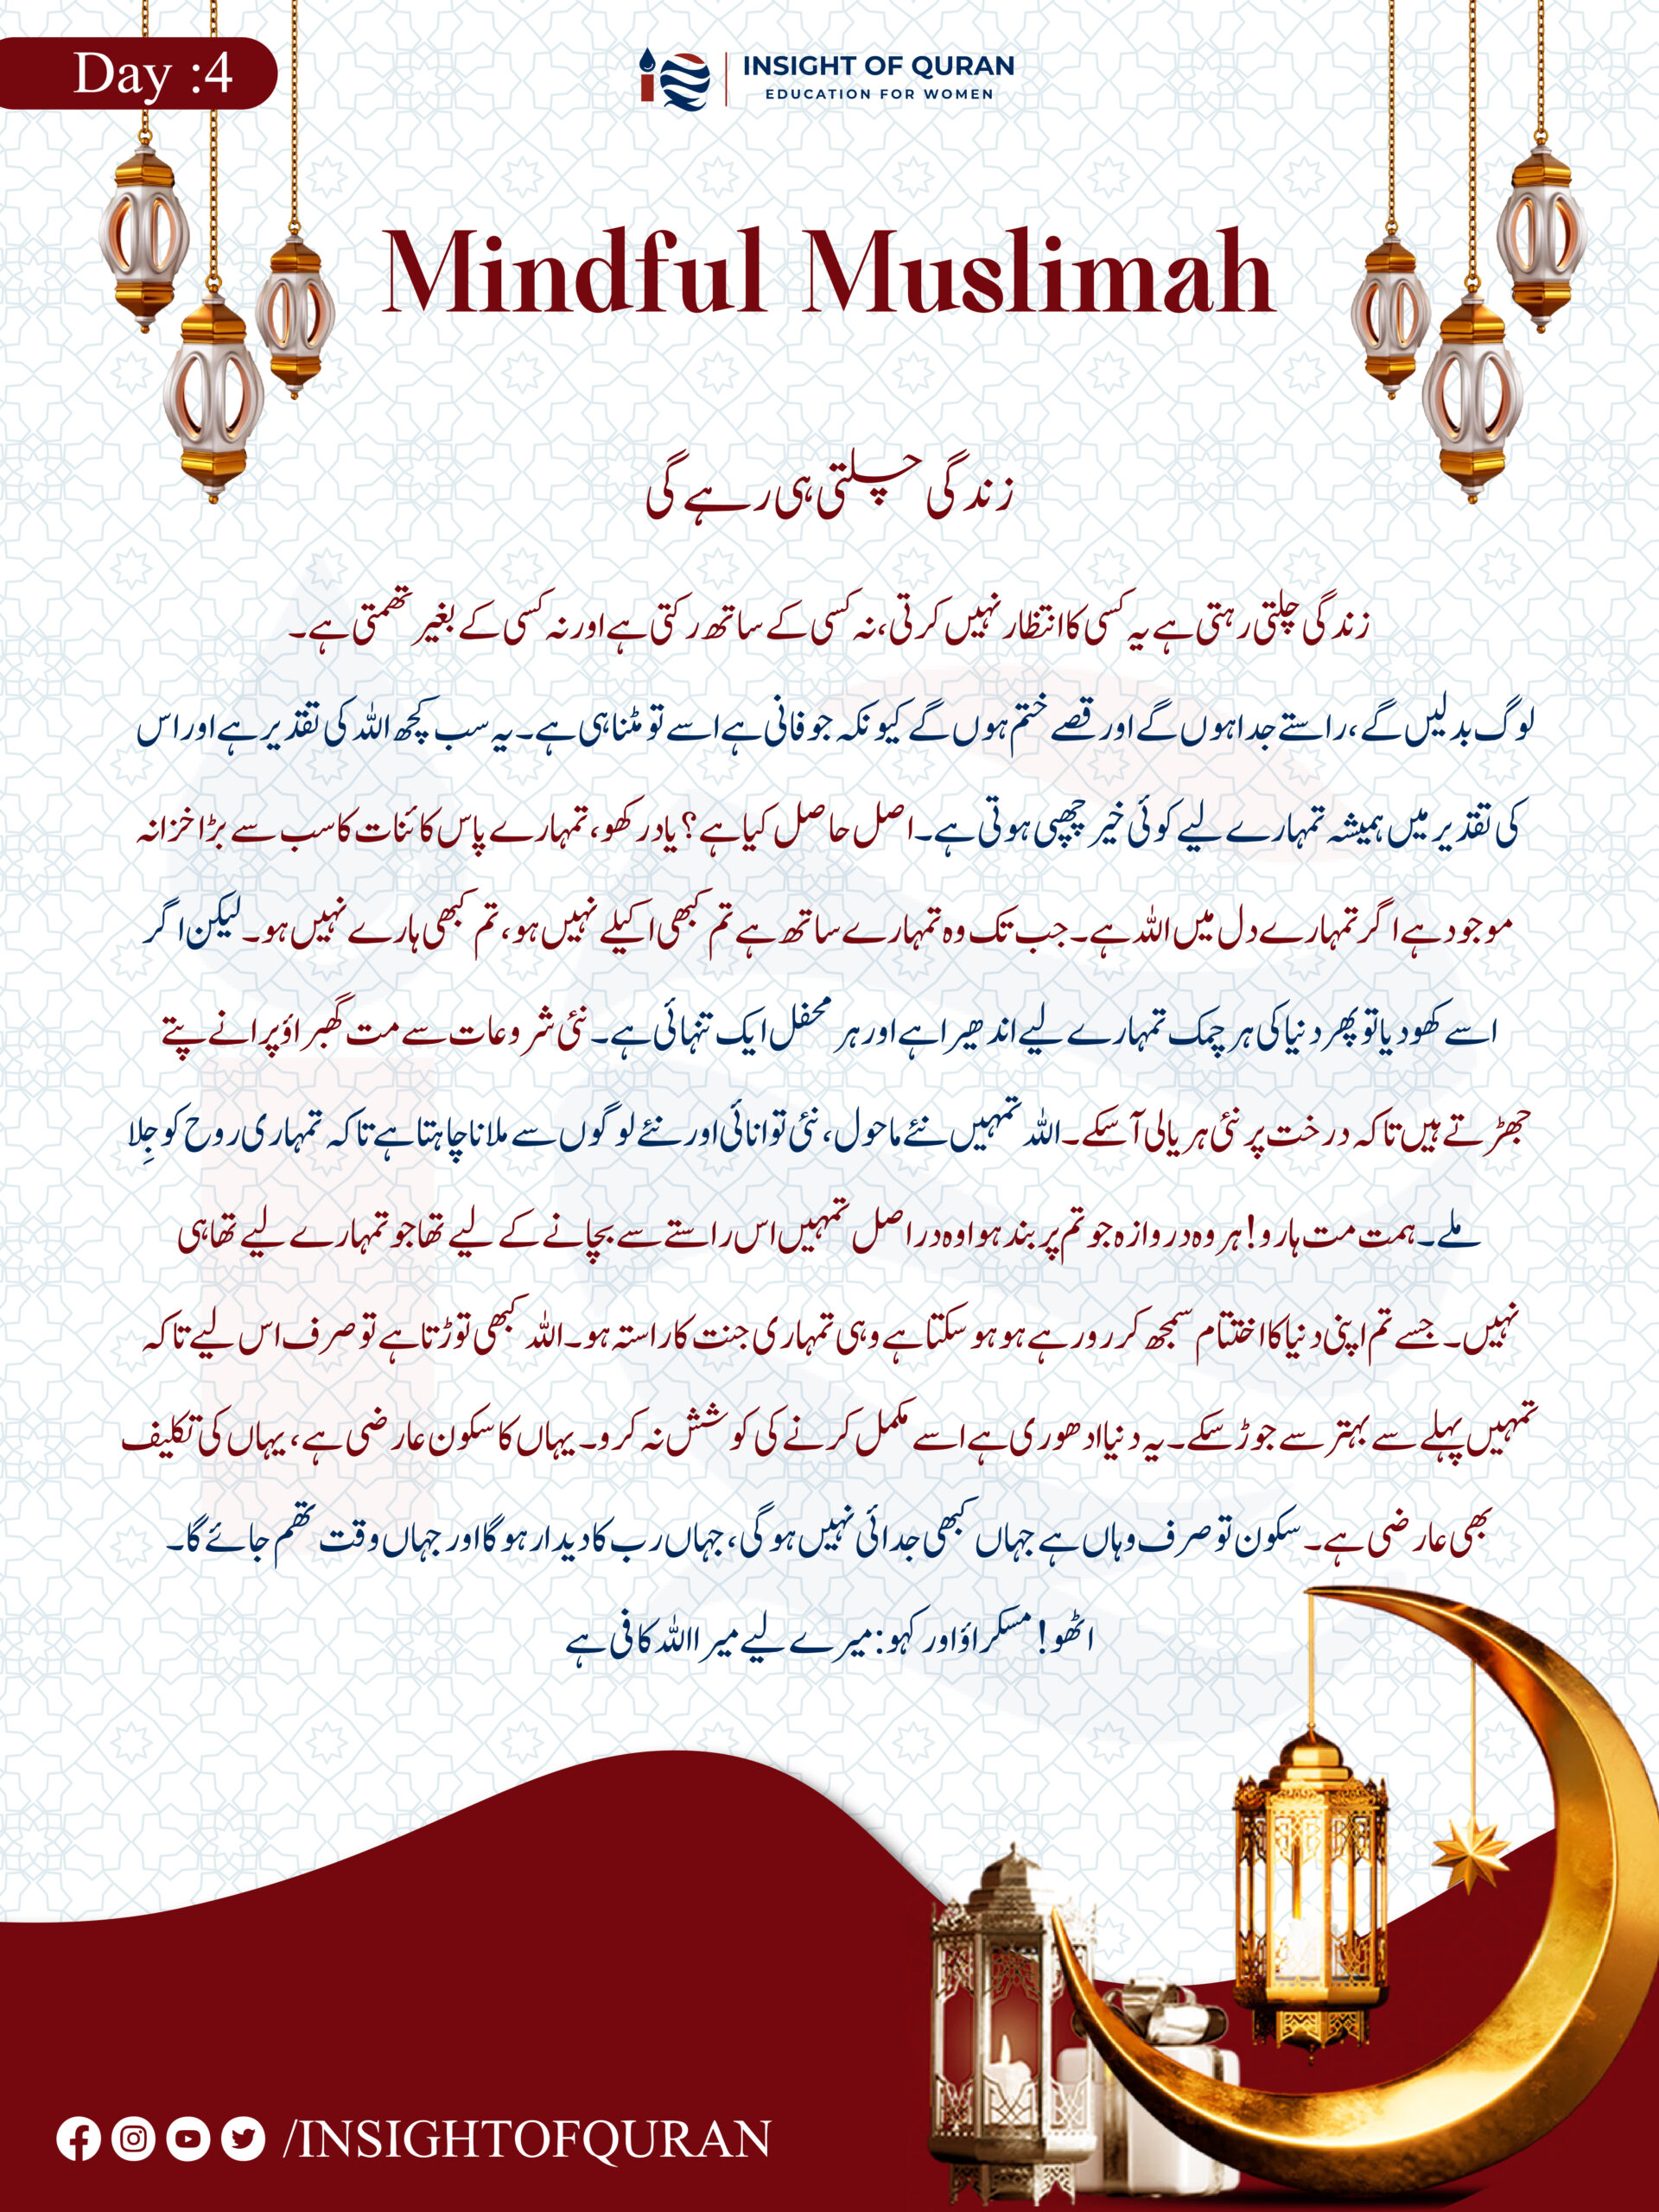 Day :4
INSIGHT OF QURAN
EDUCATION FOR WOMEN
Mindful Muslimah
زندگی چلتی ہی رہے گی
زندگی چلتی رہتی ہے یہ کسی کا انتظار نہیں کرتی، نہ کسی کے ساتھ رکتی ہے اور نہ کسی کے بغیر تھمتی ہے۔
لوگ بدلیں گے، راستے جدا ہوں گے اور قصے ختم ہوں گے کیونکہ جو فانی ہے اسے تو مٹنا ہی ہے۔ یہ سب کچھ اللہ کی تقدیر ہے اور اس
کی تقدیر میں ہمیشہ تمہارے لیے کوئی خیر چھپی ہوتی ہے۔ اصل حاصل کیا ہے؟ یاد رکھو، تمہارے پاس کائنات کا سب سے بڑا خزانہ
موجود ہے اگر تمہارے دل میں اللہ ہے۔ جب تک وہ تمہارے ساتھ ہے تم کبھی اکیلے نہیں ہو، تم کبھی ہارے نہیں ہو۔ لیکن اگر
اسے کھو دیا تو پھر دنیا کی ہر چمک تمہارے لیے اندھیرا ہے اور ہر محفل ایک تنہائی ہے۔ نئی شروعات سے مت گھبراؤ پرانے پتے
جھڑتے ہیں تاکہ درخت پر نئی ہریالی آ سکے۔ اللہ تمہیں نئے ماحول، نئی توانائی اور نئے لوگوں سے ملانا چاہتا ہے تاکہ تمہاری روح کو جِلا
ملے۔ ہمت مت ہارو! ہر وہ دروازہ جو تم پر بند ہوا وہ دراصل تمہیں اس راستے سے بچانے کے لیے تھا جو تمہارے لیے تھا ہی
نہیں۔ جسے تم اپنی دنیا کا اختتام سمجھ کر رو رہے ہو ہو سکتا ہے وہی تمہاری جنت کا راستہ ہو۔ اللہ کبھی توڑتا ہے تو صرف اس لیے تاکہ
تمہیں پہلے سے بہتر سے جوڑ سکے۔ یہ دنیا ادھوری ہے اسے مکمل کرنے کی کوشش نہ کرو۔ یہاں کا سکون عارضی ہے، یہاں کی تکلیف
بھی عارضی ہے۔ سکون تو صرف وہاں ہے جہاں کبھی جدائی نہیں ہو گی، جہاں رب کا دیدار ہو گا اور جہاں وقت تھم جائے گا۔
اٹھو! مسکراؤ اور کہو: میرے لیے میرا اللہ کافی ہے
/INSIGHTOFQURAN